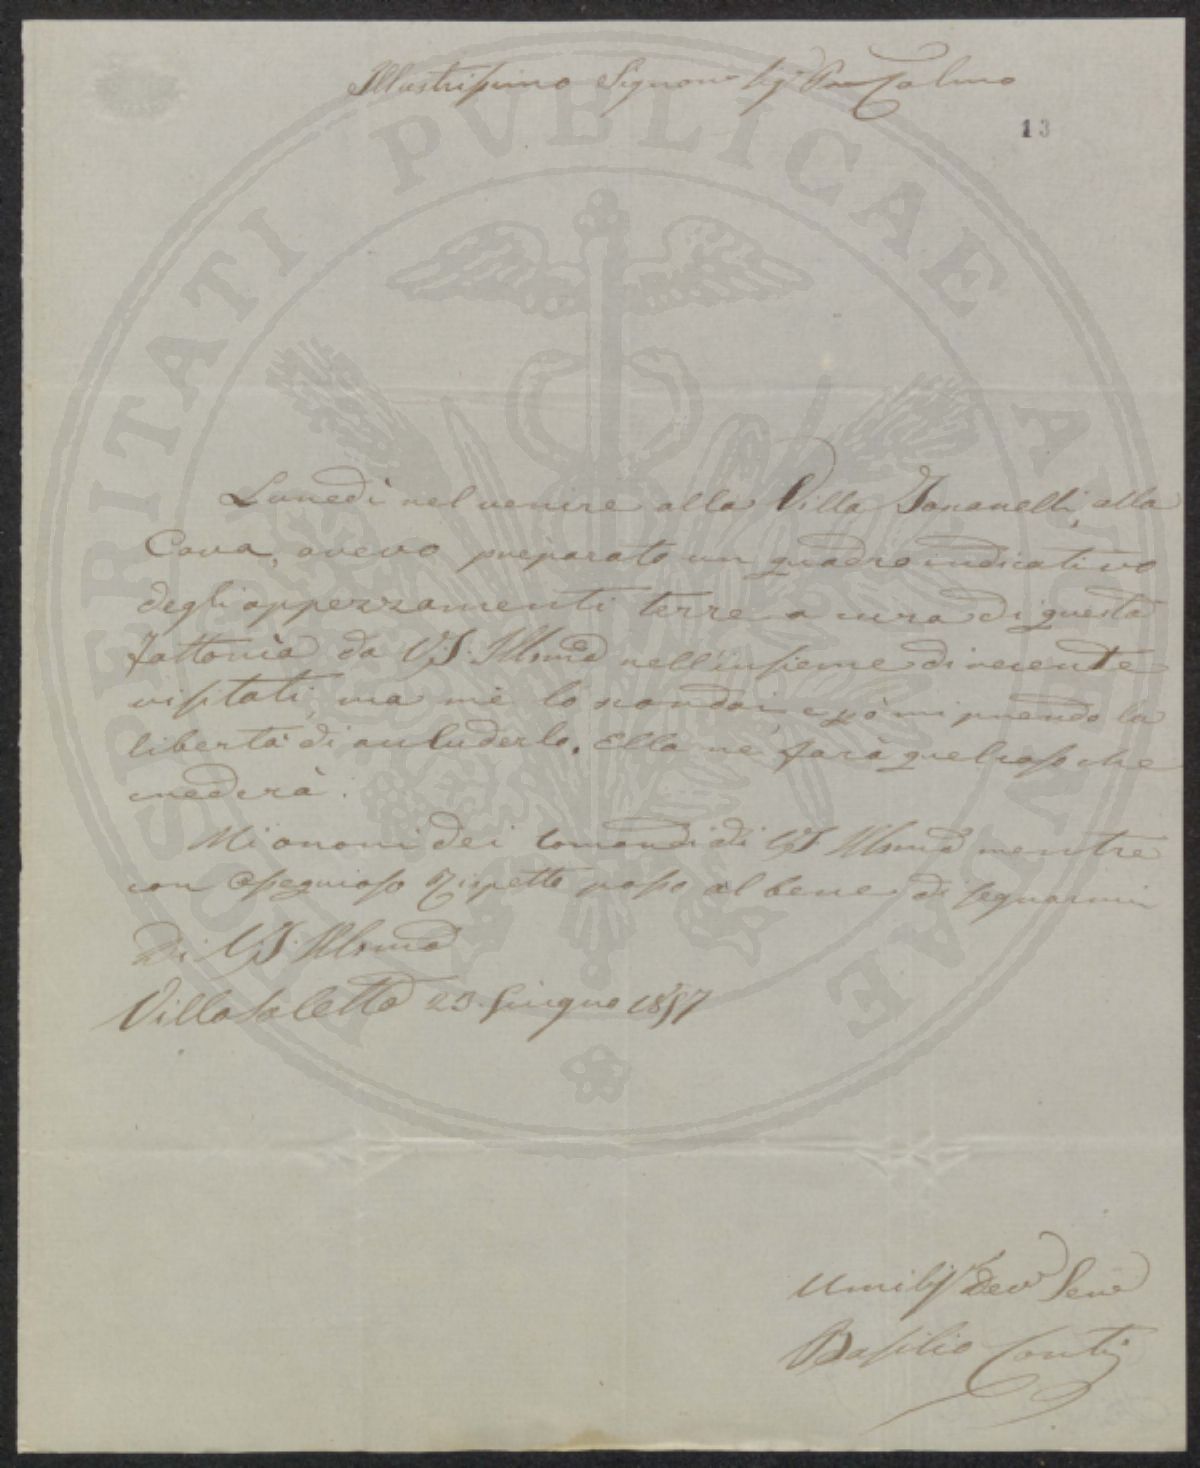 Illustrissimo Signore Sig.r Pre Calmo
13
Lunedì nel venire alla Villa Tonanelli, alla
Cava, avevo preparato un quadro indicativo
degli appezzamenti terre a cura di questa
fattoria da V.S. Illma nell'insieme di recente
visitati, ma me lo scordai, e però mi prendo la
libertà di accluderlo. Ella ne farà quel caso che
crederà.
Mi onori dei comandi di VS Illma mentre
con ossequioso rispetto passo al bene di segnarmi
Di V.S. Illma
Villa Saletta 23. Giugno 1857
Umiliss Devo Serve
Basilio Conti
PROSPERITATI PVBLICAE AVGENDAE